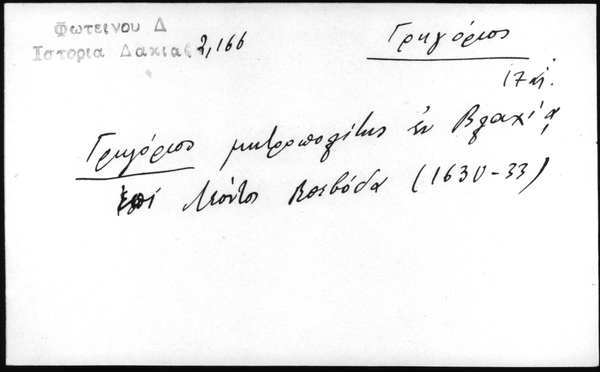 Φωτεινου Δ
Ιστορια Δακιας 2,166
Γρηγόριος
17 αἰ.
Γρηγόριος μητροπολίτης ἐν Βλαχίᾳ
ἐπί Λέοντος Βοεβόδα (1630-33)